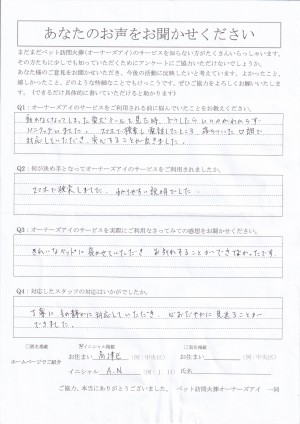 あなたのお声をお聞かせください
まだまだペット訪問火葬(オーナーズアイ)のサービスを知らない方がたくさんいらっしゃいます。
その方たちに少しでも知っていただくためにアンケートにご協力いただけないでしょうか。
あなた様のご意見をお聞かせいただき、今後の活動に反映したいと考えています。よかったこと、
嬉しかったこと、どのような些細なことでもけっこうです。ぜひご協力をよろしくお願いいたします。(できるだけ具体的に書いていただけると助かります)
Q1:オーナーズアイのサービスをご利用される前に悩んでいたことをお教えください。
動かなくなってしまった愛犬
を見た時、どうしたらいいのかわからず
パニックでいました。スマホで検索し電話したところ
対応していただき、安心することが出来ました。
Q2:何が決め手となってオーナーズアイのサービスをご利用されましたか。
スマホで検索しました。わかりやすい説明でした。
Q3:オーナーズアイのサービスを実際にご利用なさってみての感想をお聞かせください。
きれいなベッドに寝かせていただき お別れすることができてよかったです。
Q4:対応したスタッフの対応はいかがでしたか。
丁寧に
対応していただき、心おだやかに見送ることが
できました。
□匿名掲載 ☑イニシャル掲載 □実名掲載
ホームページでご紹介
お住まい 高津区 (例:中央区) お住まい (例:中央区)
イニシャル A.N (例:I.H) 氏名
ご協力、本当にありがとうございました。 ペット訪問火葬オーナーズアイ 一同